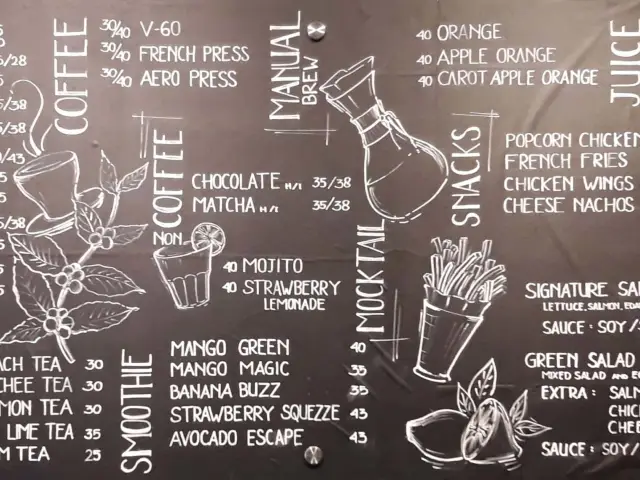 COFFEE
/28
/38
/38
/43
/38
30/40 V-60
30/40 FRENCH PRESS
30/40 AERO PRESS
MANUAL
BREW
40 ORANGE
40 APPLE ORANGE
40 CAROT APPLE ORANGE
JUICE
NON COFFEE
CHOCOLATE H/I 35/38
MATCHA H/I 35/38
SNACKS
POPCORN CHICKEN
FRENCH FRIES
CHICKEN WINGS
CHEESE NACHOS
40 MOJITO
40 STRAWBERRY
LEMONADE
MOCKTAIL
SIGNATURE SA
LETTUCE, SALMON, EDA
SAUCE : SOY /
ACH TEA 30
CHEE TEA 30
MON TEA 30
LIME TEA 35
M TEA 25
SMOOTHIE
MANGO GREEN 40
MANGO MAGIC 35
BANANA BUZZ 35
STRAWBERRY SQUEZZE 43
AVOCADO ESCAPE 43
GREEN SALAD
MIXED SALAD AND E
EXTRA : SAL
CHIC
CHEE
SAUCE : SOY/